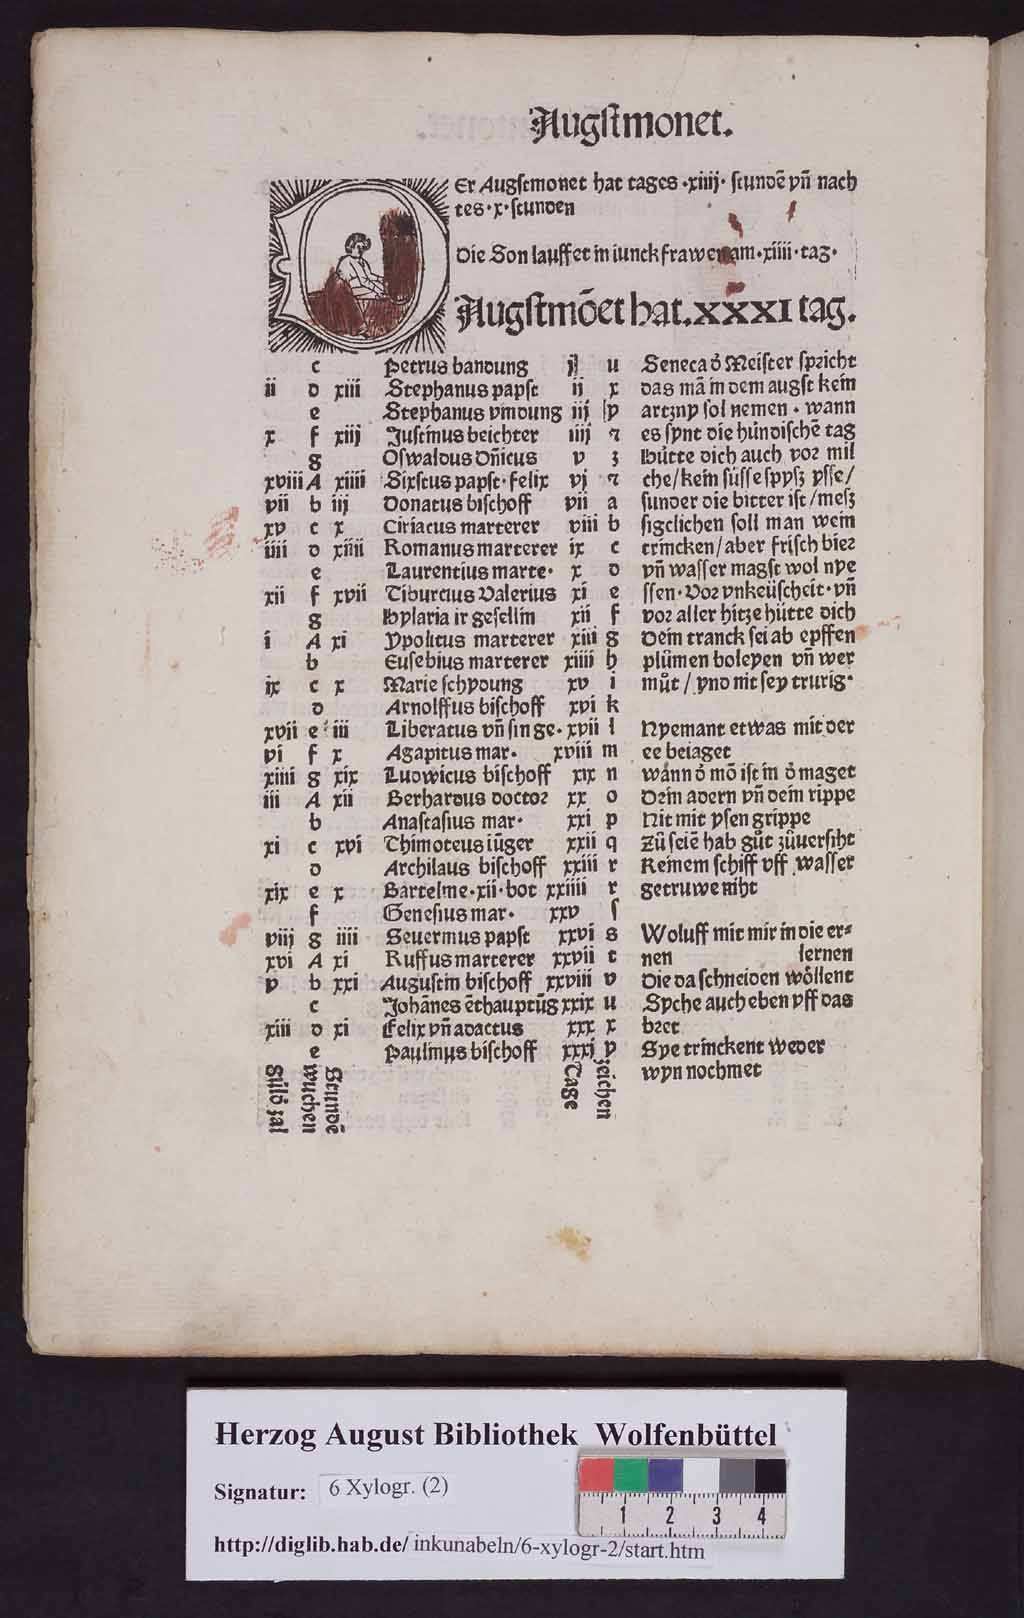 Augstmonet.
Er Augstmonet hat tages ·xiiij· stundē vn̄ nach
tes · x · stunden
Die Son lauffet in iunckfrawen am · xiiii · tag ·
Augstmōet hat. XXXI tag.
c Petrus bandung j u Seneca d̓ Meister spricht
ii d xiii Stephanus papst ii x das mā in dem augst kein
e Stephanus vindung iij y artzny sol nemen · wann
x f xiij Justinus beichter iiij ꝛ es synt die hündischē tag
g Oswaldus Dn̄icus v z Hütte dich auch vor mil
xviii A xiiii Sixstus papst · felix vj ꝛ che / kein süsse spysz ysse /
vii b iij Donatus bischoff vii a sunder die bitter ist / mesz
xv c x Ciriacus marterer viii b sigclichen soll man wein
iiii d xiiii Romanus marterer ix c trincken / aber frisch bier
e Laurentius marte · x d vn̄ wasser magst wol nye
xii f xvii Tiburcius Valerius xi e ssen · Vor vnkeüscheit · vn̄
g Hylaria ir gesellin xii f vor aller hitze hütte dich
i A xi Ypolitus marterer xiii g Dein tranck sei ab epffen
b Eusebius marterer xiiii h plůmen boleyen vn̄ wer
ix c x Marie schydung xv i můt / vnd nit sey trurig ·
d Arnolffus bischoff xvi k
xvii e iii Liberatus vn̄ sin ge · xvii l Nyemant etwas mit der
vi f x Agapitus mar · xviii m ee beiaget
xiiii g xix Ludwicus bischoff xix n wann d̓ mō ist in d̓ maget
iii A xii Berhardus doctor xx o Dein adern vn̄ dein rippe
b Anastasius mar · xxi p Nit mit ysen grippe
xi c xvi Thimoteus iūger xxii q Zů seiē hab gůt zůuersiht
d Archilaus bischoff xxiii r Keinem schiff vff wasser
xix e x Bartelme · xii · bot xxiiii r getruwe niht
f Genesius mar · xxv ſ
viij g iiii Seuerinus papst xxvi s Woluff mit mir in die er⸗
xvi A xi Ruffus marterer xxvii t nen lernen
v b xxi Augustin bischoff xxviii v Die da schneiden wöllent
c Johānes ēthauptūg xxix u Syche auch eben vff das
xiii d xi Felix vn̄ adactus xxx x bret
e Paulinus bischoff xxxi y Sye trinckent weder
wyn noch met
Güld zal
wuchen
Stundē
Tage
zeichen
Herzog August Bibliothek Wolfenbüttel
Signatur: 6 Xylogr. (2)
1 2 3 4
http://diglib.hab.de/ inkunabeln/6-xylogr-2/start.htm